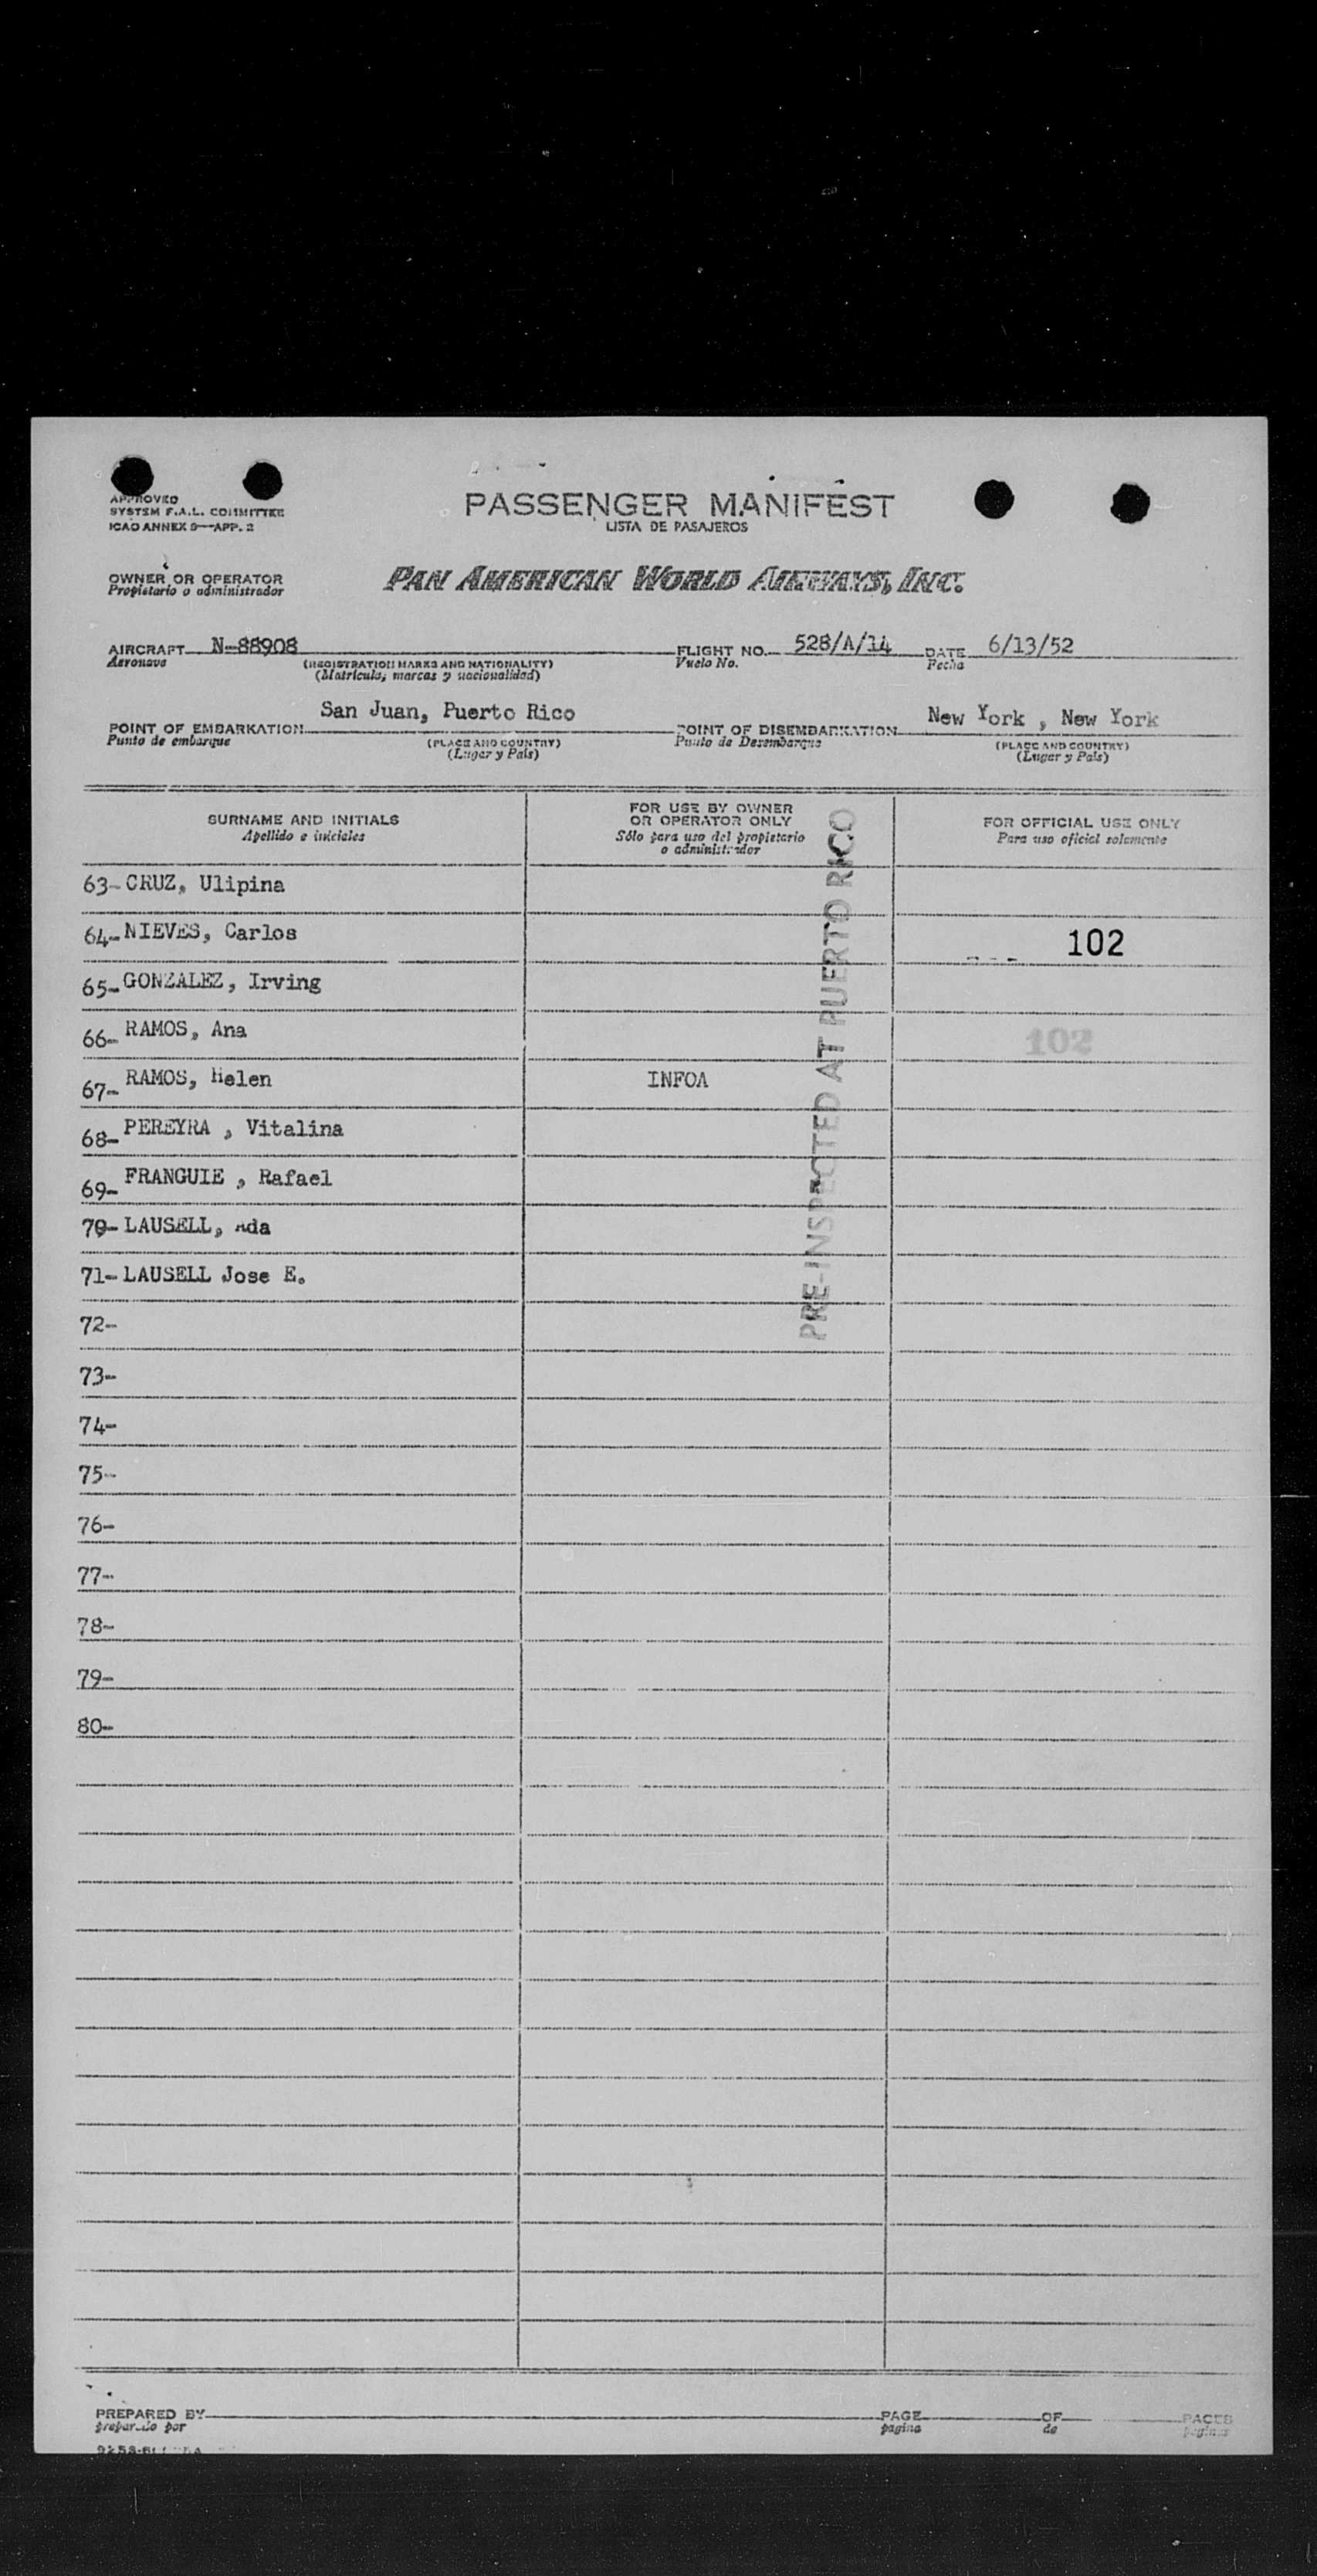 APPROVED
SYSTEM F.A.L. COMMITTEE
ICAO ANNEX 9—APP. 2
PASSENGER MANIFEST
LISTA DE PASAJEROS
OWNER OR OPERATOR
Propietario o administrador
PAN AMERICAN WORLD AIRWAYS, INC.
AIRCRAFT N-88908 FLIGHT NO. 528/A/14 DATE 6/13/52
Aeronave (REGISTRATION MARKS AND NATIONALITY) Vuelo No. Fecha
(Matrícula, marcas y nacionalidad)
POINT OF EMBARKATION San Juan, Puerto Rico POINT OF DISEMBARKATION New York , New York
Punto de embarque (PLACE AND COUNTRY) Punto de Desembarque (PLACE AND COUNTRY)
(Lugar y País) (Lugar y País)
SURNAME AND INITIALS
Apellido e iniciales
FOR USE BY OWNER
OR OPERATOR ONLY
Sólo para uso del propietario
o administrador
FOR OFFICIAL USE ONLY
Para uso oficial solamente
63- CRUZ, Ulipina
64- NIEVES, Carlos 102
65- GONZALEZ, Irving
66- RAMOS, Ana 102
67- RAMOS, Helen INFOA
68- PEREYRA , Vitalina
69- FRANGUIE , Rafael
70- LAUSELL, Ada
71- LAUSELL Jose E.
72-
73-
74-
75-
76-
77-
78-
79-
80-
PRE-INSPECTED AT PUERTO RICO
PREPARED BY PAGE OF PAGES
preparado por página de páginas